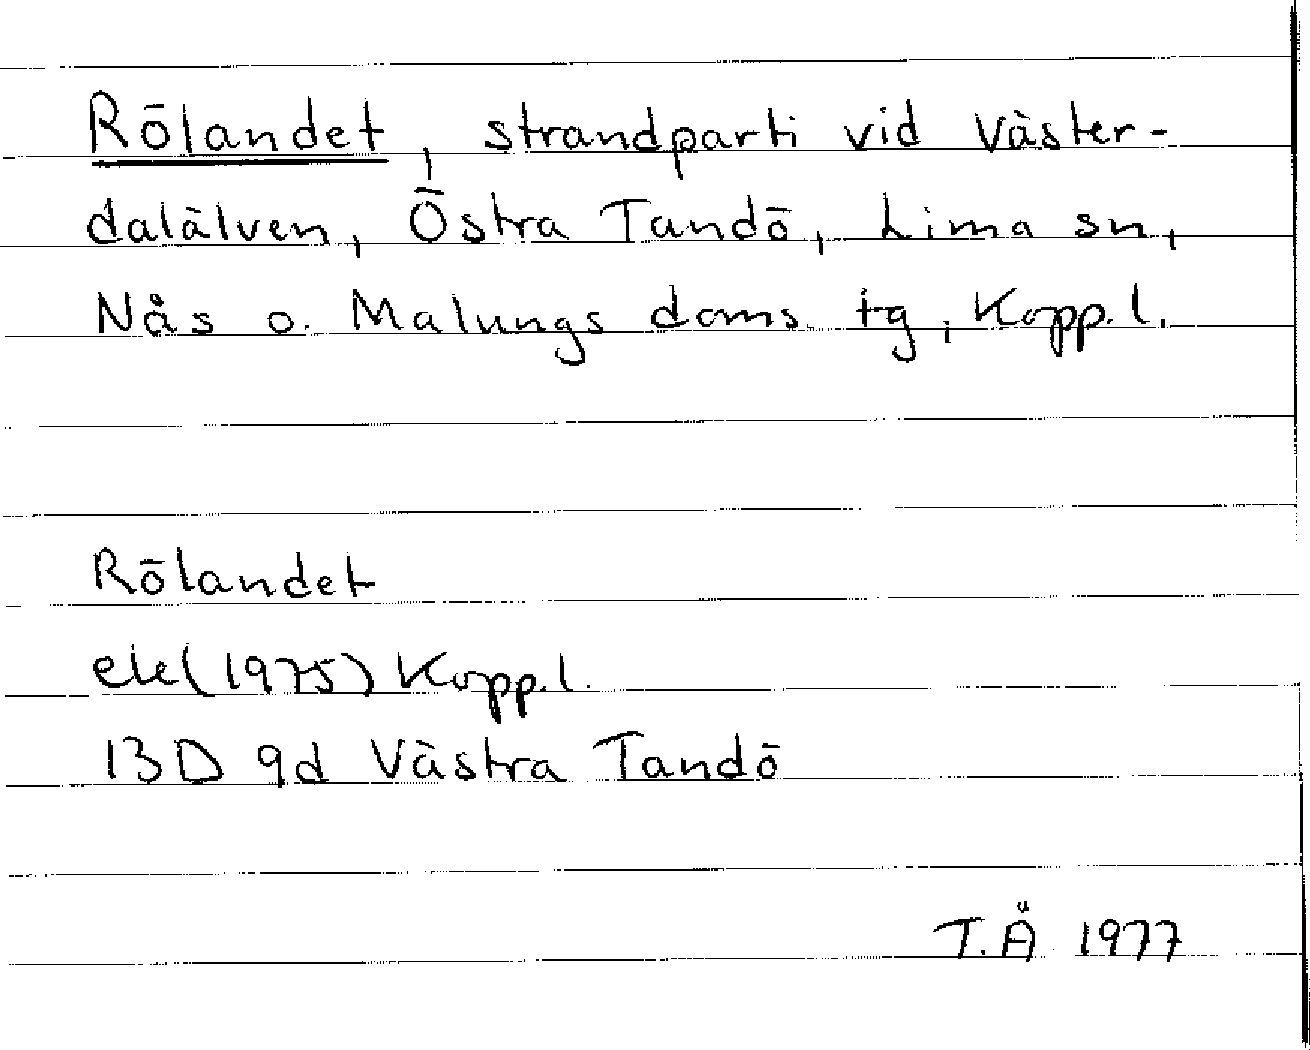 Rölandet, strandparti vid Väster-
dalälven, Östra Tandö, Lima sn,
Nås o. Malungs doms. tg, Kopp. l.
Rölandet
ek (1975) Kopp. l.
13D 9d Västra Tandö
T.Å 1977